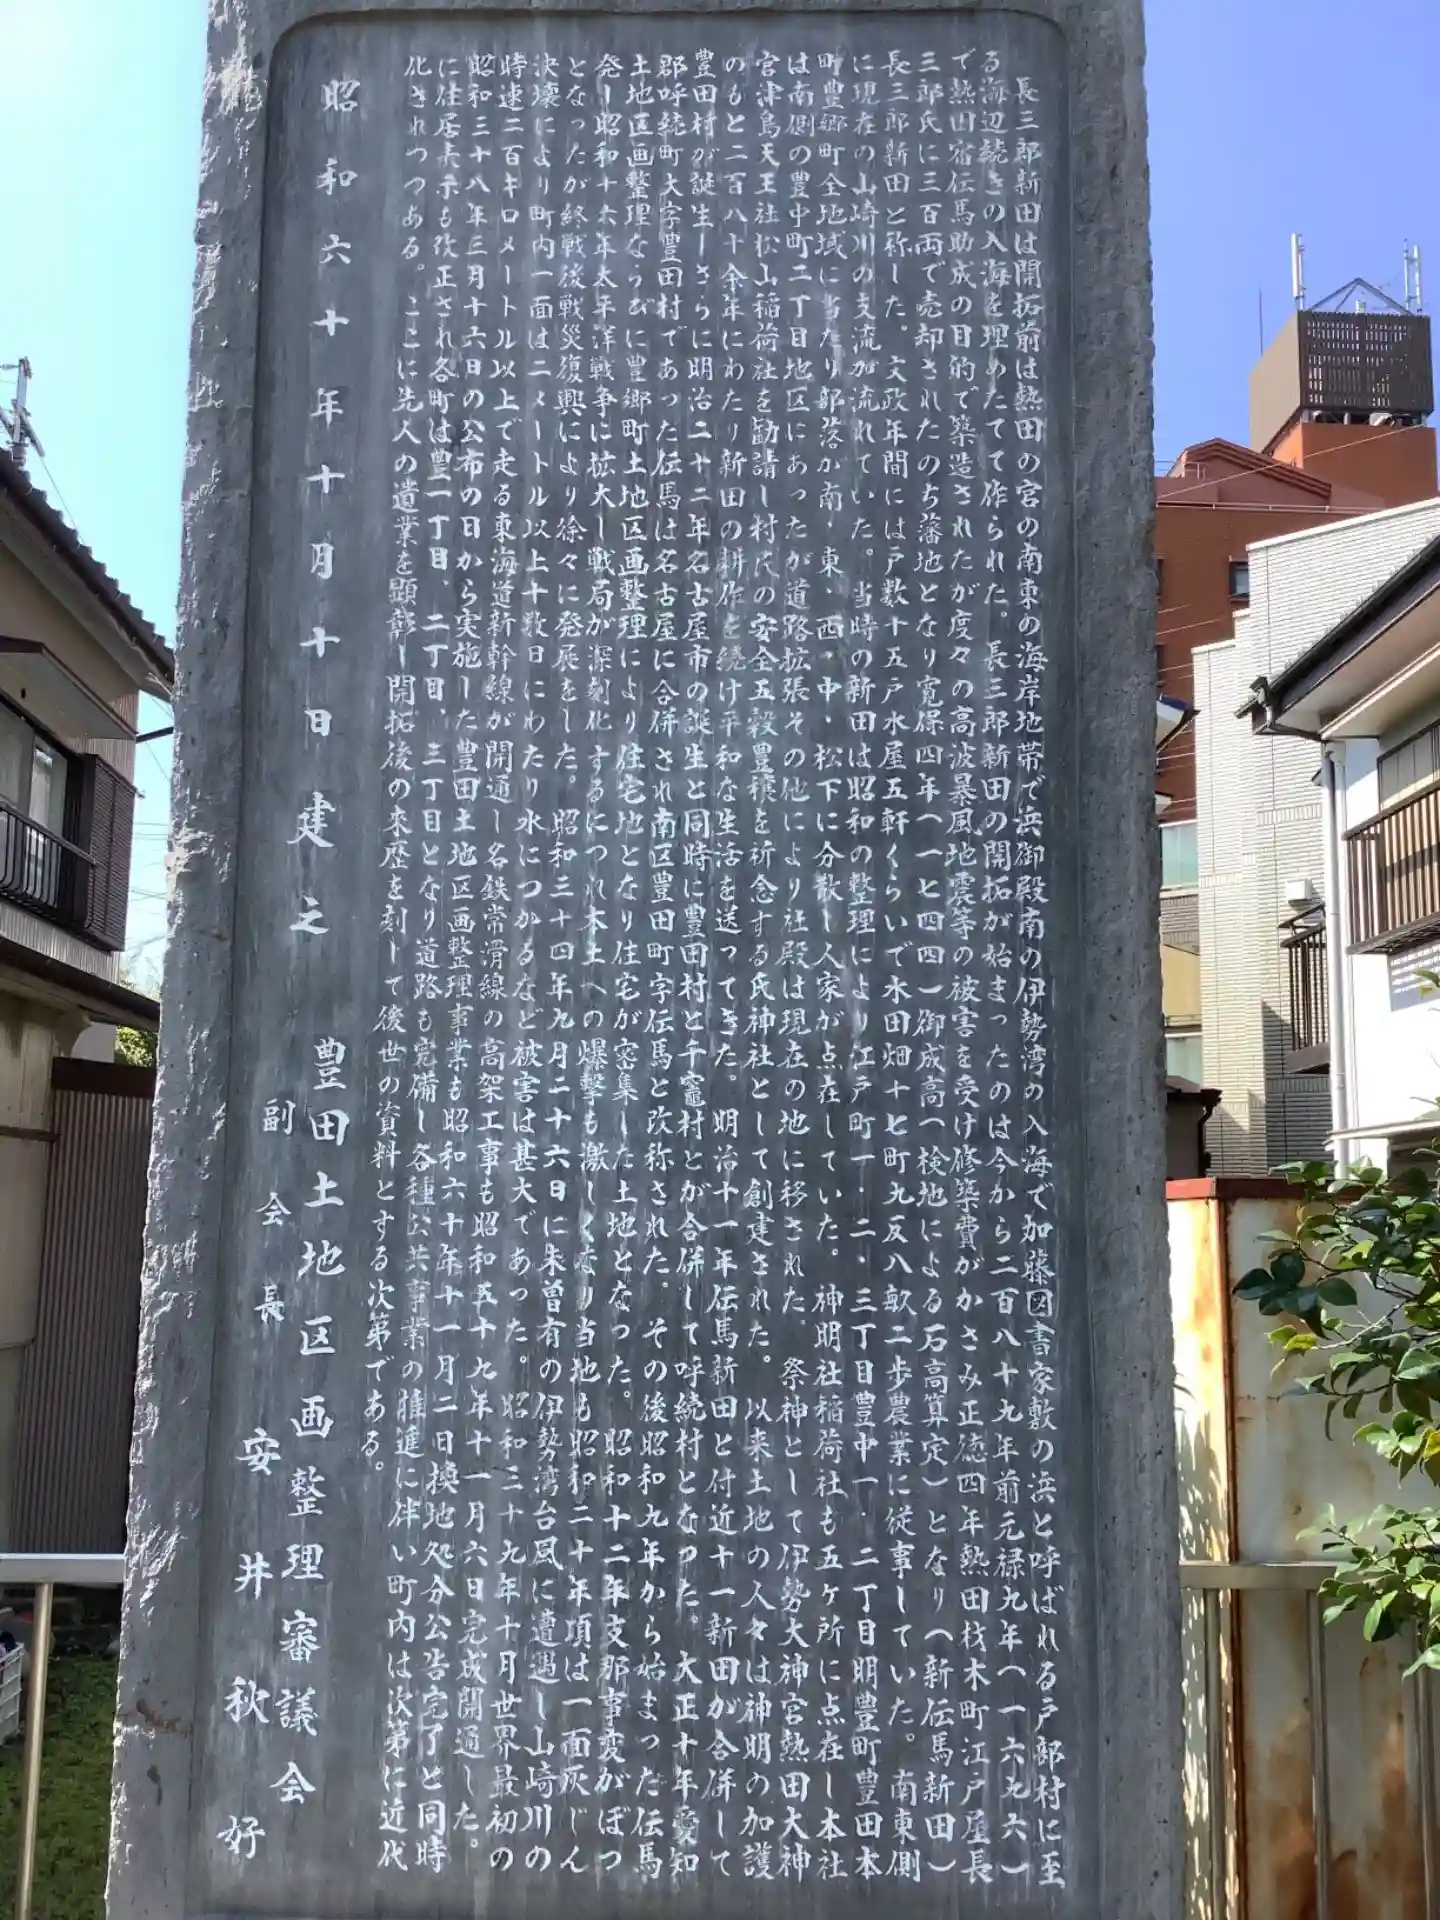 長三郎新田は開拓前は熱田の宮の南東の海岸地帯で浜御殿南の伊勢湾の入海で加藤図書家敷の浜と呼ばれる戸部村に至
る海辺続きの入海を埋めたてて作られた。長三郎新田の開拓が始まったのは今から二百八十九年前元禄九年(一六九六)
で熱田宿伝馬助成の目的で築造されたが度々の高波暴風地震等の被害を受け修築費がかさみ正徳四年熱田材木町江戸屋長
三郎氏に三百両で売却されたのち藩地となり寛保四年(一七四四)御成高(検地による石高算定)となり(新伝馬新田)
長三郎新田と称した。文政年間には戸数十五戸水屋五軒くらいで水田畑十七町九反八畝二歩農業に従事していた。南東側
に現在の山崎川の支流加流れていた。当時の新田は昭和の整理により江戸町一・二・三丁目豊中一・二丁目明豊町豊田本
町豊郷町全地域に当たり部落が南・東・西・中・松下に分散し人家が点在していた。神明社稲荷社も五ヶ所に点在し本社
は南側の豊中町二丁目地区にあったが道路拡張その他により社殿は現在の地に移された。祭神として伊勢大神宮熱田大神
宮津島天王社松山稲荷社を勧請し村民の安全五穀豊穣を祈念する氏神社として創建された。以来土地の人々は神明の加護
のもと二百八十余年にわたり新田の耕作を続け平和な生活を送ってきた。明治十一年伝馬新田と付近十一新田が合併して
豊田村が誕生しさらに明治二十二年名古屋市の誕生と同時に豊田村と千竈村とが合併して呼続村となった。大正十年愛知
郡呼続町大字豊田村であった伝馬は名古屋に合併され南区豊田町字伝馬と改称された。その後昭和九年から始まった伝馬
土地区画整理ならびに豊郷町土地区画整理により住宅地となり住宅が密集した土地となった。昭和十二年支那事変がぼつ
発し昭和十六年太平洋戦争に拡大し戦局が深刻化するにつれ本土への爆撃も激しくなり当地も昭和二十年項は一面灰じん
となったが終戦後戦災復興により徐々に発展をした。昭和三十四年九月二十六日に未曽有の伊勢湾台風に遭遇し山崎川の
決壊により町内一面は二メートル以上十数日にわたり水につかるなど被害は甚大であった。昭和三十九年十月世界最初の
時速二百キロメートル以上で走る東海道新幹線が開通し名鉄常滑線の高架工事も昭和五十九年十一月六日完成開通した。
昭和三十八年三月十六日の公布の日から実施した豊田土地区画整理事業も昭和六十年十一月二日換地処分公告完了と同時
に住居表示も改正され各町は豊一丁目、二丁目、三丁目となり道路も完備し各種公共事業の推進に伴い町内は次第に近代
化されつつある。ここに先人の遺業を顕彰し開拓後の来歴を刻して後世の資料とする次第である。
昭和六十年十月十日建之　豊田土地区画整理審議会
副会長　安井秋好